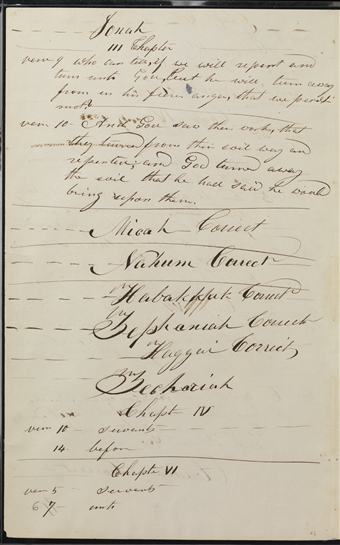 Jonah
III Chapter
vers 9 who can tell, if we will repent and
turn unto God, but he will, turn away
from us his fierce anger, that we perish
not?
vers 10 And God saw their works, that
they turned from their evil way and
repented; and God turned away
the evil that he had said he would
bring upon them.
Micah Correct
Nahum Correct
Habakkuk Correct
Zephaniah Correct
Haggai Correct
Zechariah
Chapt IV
vers 10 servants
14 before
Chapte VI
vers 5 servants
6 7 unto